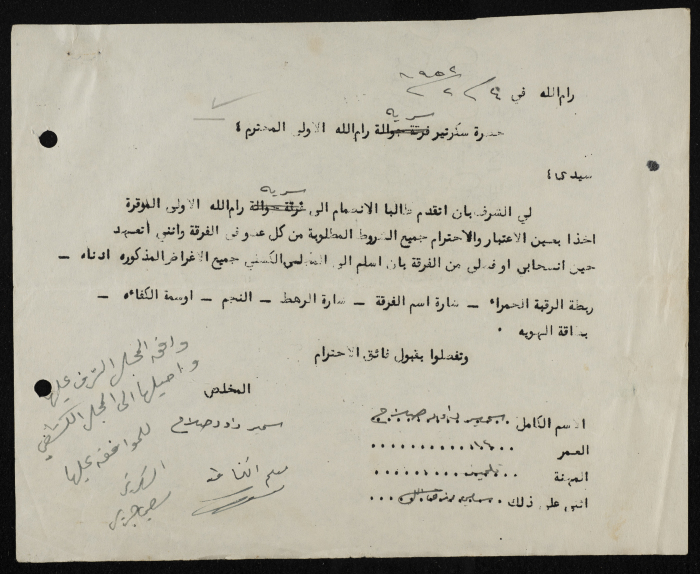 رام الله في ٤/٢/١٩٥٢
سرية
حضرة سكرتير فرقة جوالة رام الله الاولى المحترم ،
سيدي ،
سرية
لي الشرف بان اتقدم طالبا الانضمام الى فرقة جوالة رام الله الاولى الموقرة
اخذا بعين الاعتبار والاحترام جميع الشروط المطلوبة من كل عضو في الفرقة وانني أتعهد
حين انسحابي او فصلي من الفرقة بان اسلم الى المجلس الكشفي جميع الاغراض المذكوره ادناه –
ربطة الرقبة الحمراء – شارة اسم الفرقة – شارة الرهط – النجم – اوسمة الكفاءه –
بطاقة الهويه .
وتفضلوا بقبول فائق الاحترام
المخلص
سمير داود صلاح
الاسم الكامل . سمير داود صلاح
العمر
المهنة
اثنى على ذلك
وافق المجلس الشرف عليها
و احيلها الى المجلس الكشفي
للموافقة عليها
السكرتير